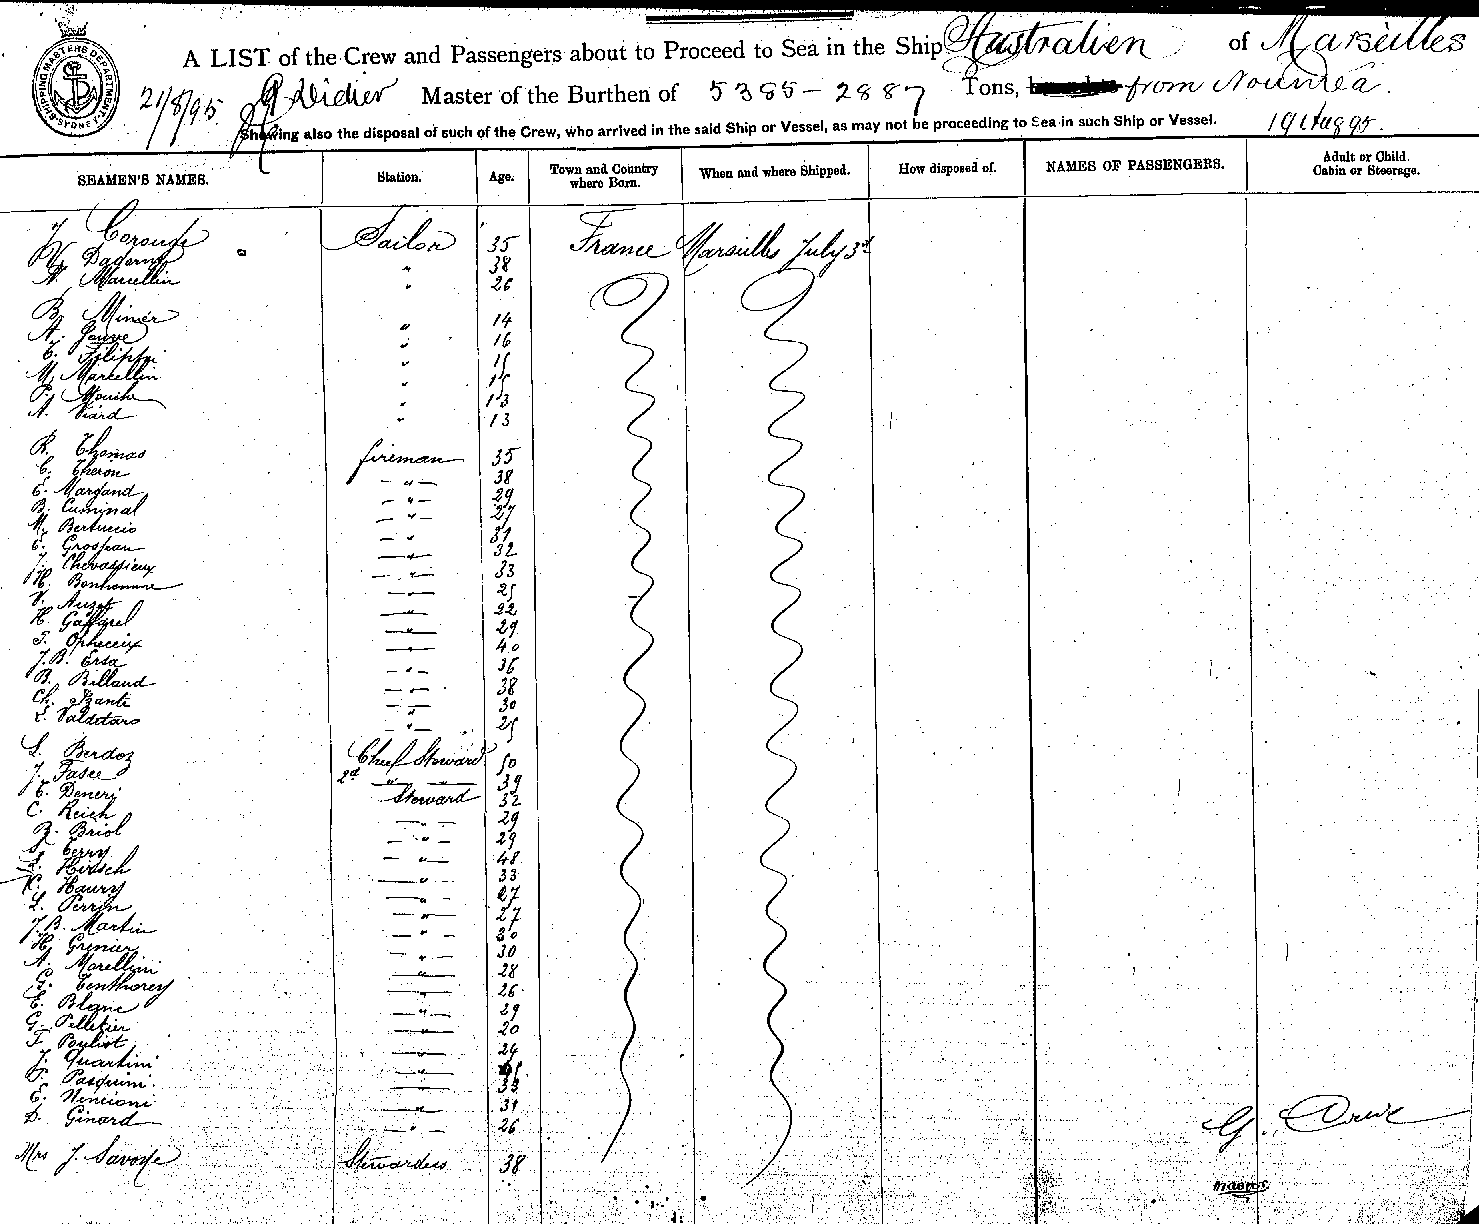 SHIPPING MASTERS DEPARTMENT SYDNEY
A LIST of the Crew and Passengers about to Proceed to Sea in the Ship Australien of Marseilles
21/8/95 Didier Master of the Burthen of 5385 - 2887 Tons, from Nouméa.
Showing also the disposal of such of the Crew, who arrived in the said Ship or Vessel, as may not be proceeding to Sea in such Ship or Vessel. 19 Aug 95.
SEAMEN'S NAMES. Station. Age. Town and Country where Born. When and where Shipped. How disposed of. NAMES OF PASSENGERS. Adult or Child. Cabin or Steerage.
Sailor 35 France Marseilles July 3rd
" 38
Marcellin " 26
B. Minier " 14
A. " 16
Filippi " 15
M. Marcellin " 15
" 13
A. Viard " 13
R. Thomas fireman 35
C. Theron " 38
E. Margand " 29
B. Cuminal " 27
M. Bertuccio " 31
E. Grosjean " 32
J. Chevassieux " 33
H. Bonhomme " 25
V. Auzet " 22
H. Gaffarel " 29
" 40
J.B. Ersa " 36
B. Billaud " 38
Ch. " 30
L. Valdetaro " 25
L. Berdoz Chief Steward 50
J. Fasce 2d " " 39
E. Deneri Steward 32
C. Reich " 29
B. Briol " 29
Terry " 48
L. Hirsch " 33
C. Haury " 27
L. Perrin " 27
J.B. Martin " 30
H. Grenier " 30
A. Morellini " 28
G. Tenthorey " 26
E. Blanc " 29
G. Pelletier " 20
F. Pouliot " 24
J. Quartini "
P. Pasquini. " 33
E. Nincioni " 31
D. Ginard " 26
Mrs J. Savoye Stewardess 38
G.
master